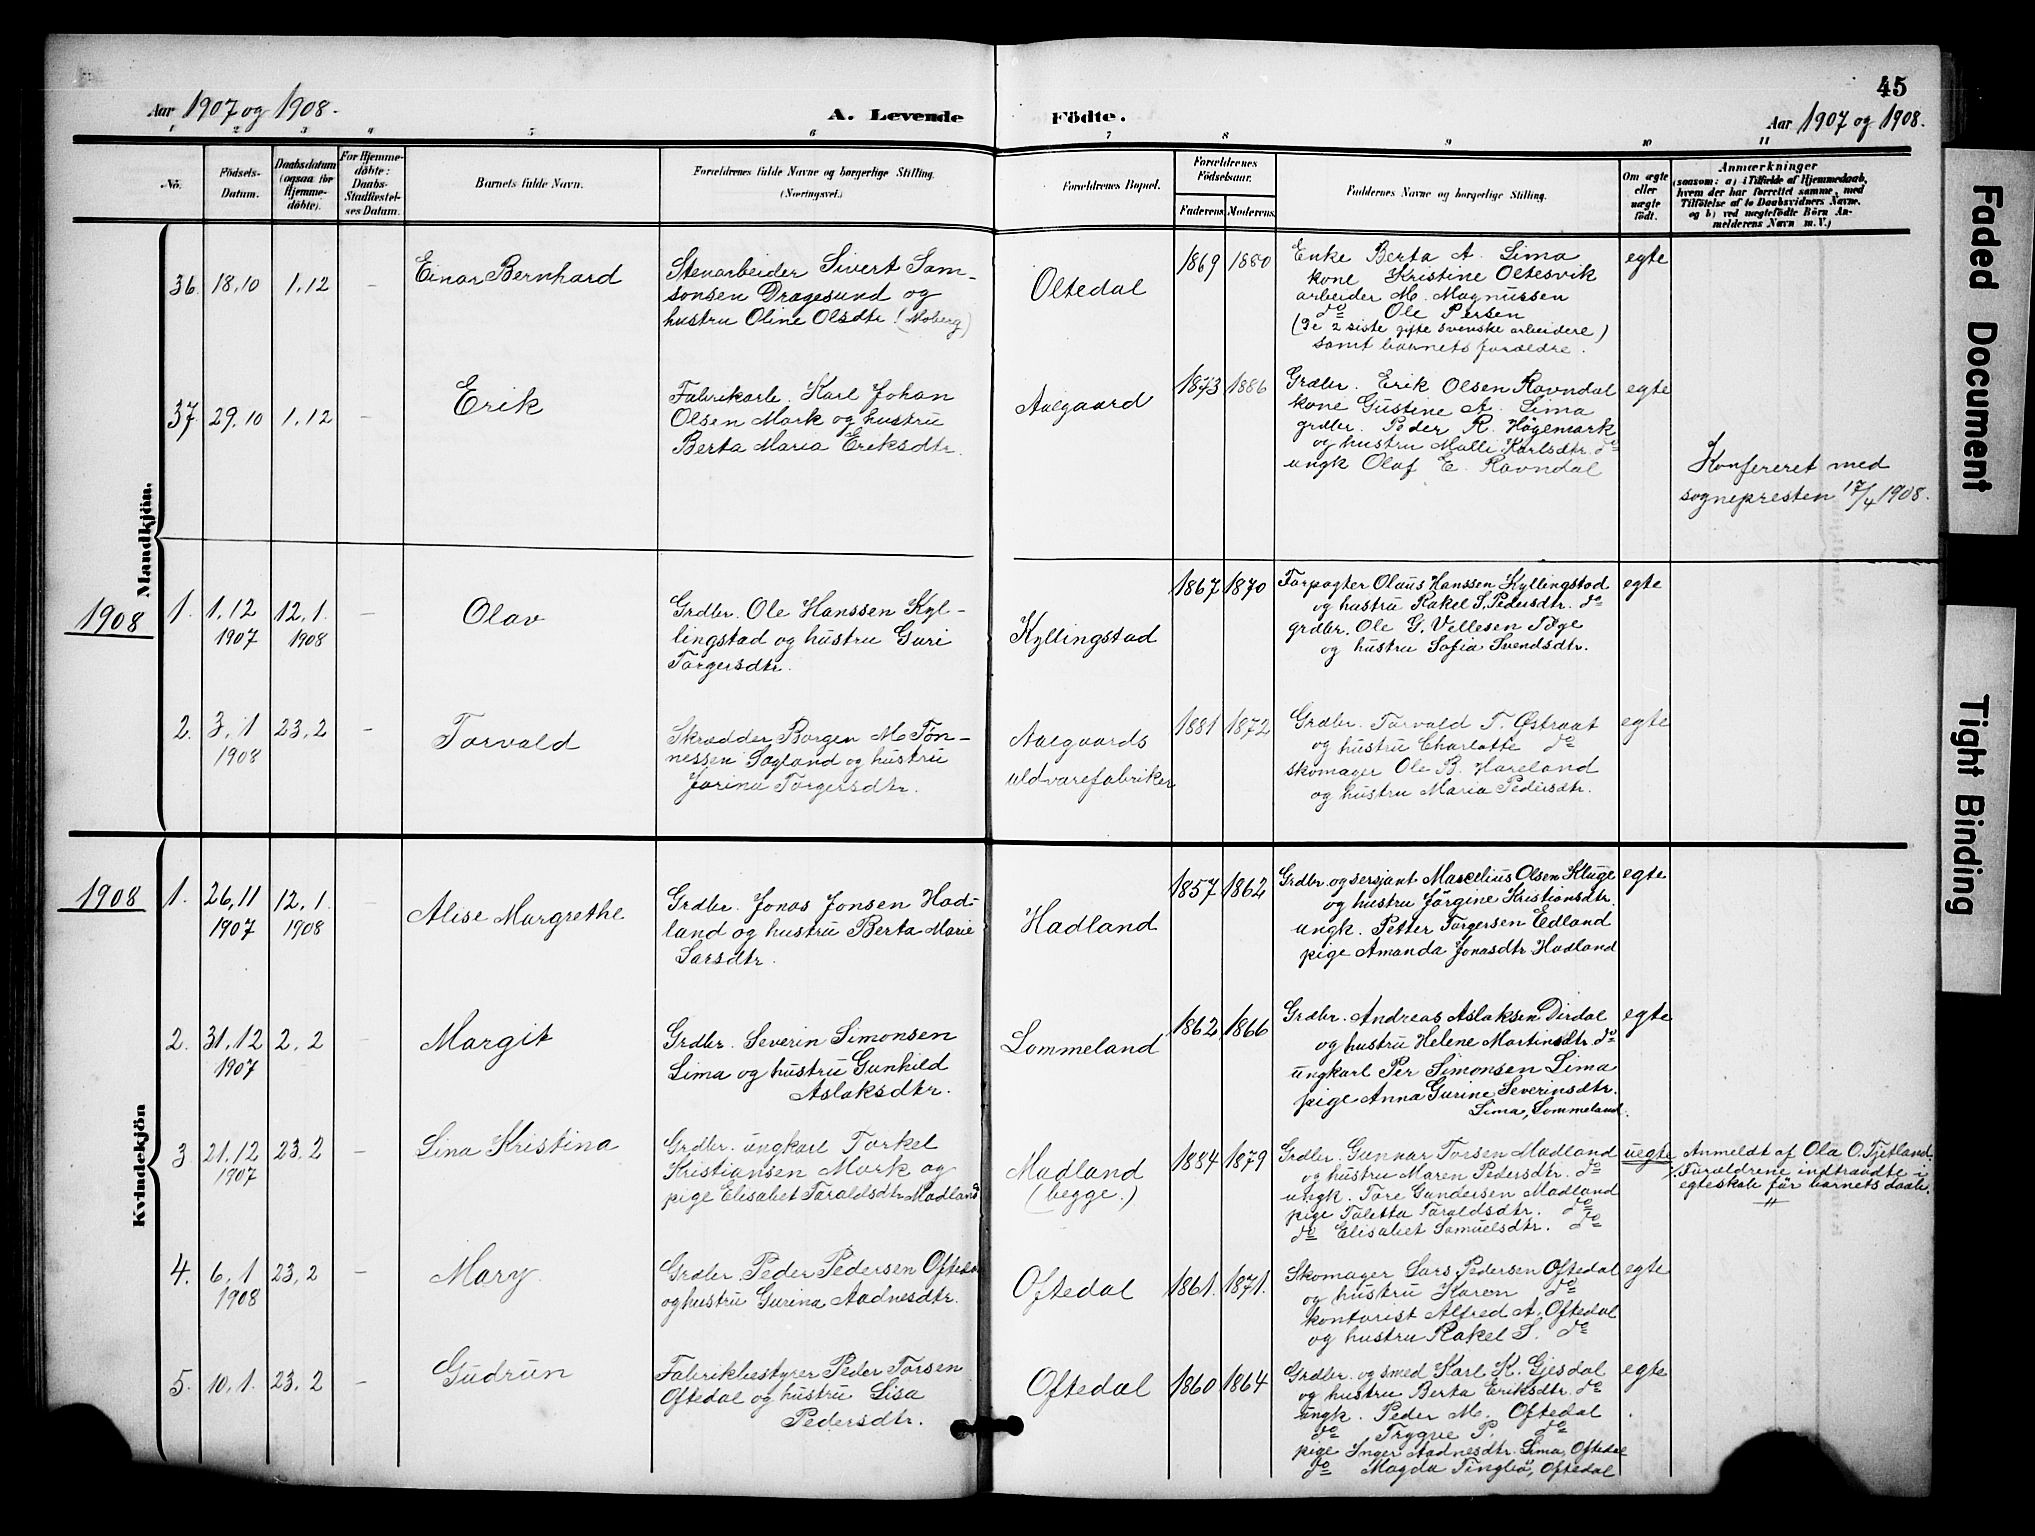 45
Aar 1907 og 1908.
A. Levende
Födte.
Aar 1907 og 1908.
1 2 3 4 5 6 7 8 9 10 11
No.
Födsels-
Datum.
Daabsdatum
(ogsaa for
Hjemme-
döbte).
For Hjemme-
döbte:
Daabs-
Stadfæstel-
ses Datum.
Barnets fulde Navn.
Forældrenes fulde Navne og borgerlige Stilling.
(Næringsvei.)
Forældrenes Bopæl.
Forældrenes
Födselsaar.
Faderens.
Moderens.
Faddernes Navne og borgerlige Stilling.
Om ægte
eller
uægte
födt.
Anmærkninger
(saasom: a) i Tilfælde af Hjemmedaab,
hvem der har forrettet samme, med
Tilföielse af to Daabsvidners Navne,
og b) ved uægtefödte Börn An-
melderens Navn m. V.)
Mandkjön.
36. 18,10 1,12 –
Einar Bernhard
Stenarbeider Sivert Sam-
sonsen Dragesund og
hustru Oline Olsdtr. (Moberg)
Oltedal
1869 1880
Enke Berta A. Lima
kone Kristine Oltesvik
arbeider M. Magnussen
do Ole Persen
(De 2 siste gifte svenske arbeidere)
samt barnets forældre.
egte
37. 29,10 1,12 –
Erik
Fabrikarb. Karl Johan
Olsen Mork og hustru
Berta Maria Eriksdtr.
Aalgaard
1873 1886
Grdbr. Erik Olsen Ravndal
kone Gustine A. Lima
grdbr. Peder R. Høgemark
og hustru Malli Karlsdtr. do
ungk Olaf E. Ravndal
egte
Konfereret med
sognepresten 17/4 1908.
1908
1. 1,12 12,1 –
1907 1908
Olav
Grdbr. Ole Hanssen Kyl-
lingstad og hustru Guri
Torgersdtr.
Kyllingstad
1867 1870
Forpagter Olaus Hanssen Kyllingstad
og hustru Rakel S. Pedersdtr. do
grdbr. Ole G. Vellesen Tøge
og hustru Sofia Svendsdtr.
egte
2. 3,1 23,2 –
1908
Torvald
Skrædder Borgen M. Tön-
nessen Sagland og hustru
Jorina Torgersdtr.
Aalgaards
uldvarefabriker
1881 1872
Grdbr. Torvald T. Østraat
og hustru Charlotte do
skomager Ole B. Hareland
og hustru Maria Pedersdtr.
egte
Kvindekjön
1908
1. 26,11 12,1.
1907 1908
Alise Margrethe
Grdbr. Jonas Jonsen Had-
land og hustru Berta Marie
Larsdtr.
Hadland
1857 1862
Grdbr. og sersjant Marcelius Olsen Kluge
og hustru Jörgine Kristiansdtr.
ungk. Petter Torgersen Edland
pige Amanda Jonasdtr Hadland
egte
2. 31,12 2,2
1907
Margit
Grdbr. Severin Simonsen
Lima og hustru Gunhild
Aslaksdtr.
Lommeland
1862 1866
Grdbr. Andreas Aslaksen Dirdal
og hustru Helene Martinsdtr. do
ungkarl Per Simonsen Lima
pige Anna Gurine Severinsdtr.
Lima, Lommeland.
egte
3 21,12 23,2 –
1907
Lina Kristina
Grdbr. ungkarl Torkel
Kristiansen Mork og
pige Elisabet Taraldsdtr Madland
Madland
(begge.)
1884 1879
Grdbr. Gunnar Torsen Madland
og hustru Maren Pedersdtr. do
ungk. Tore Gundersen Madland
pige Taletta Taraldsdtr. do
do Elisabet Samuelsdtr. do
uegte
Anmeldt af Ola O. Tjetland.
Forældrene indtraadte i
egteskab för barnets daab.
4. 6,1 23,2 –
1908
Mary
Grdbr. Peder Pedersen Oftedal
og hustru Gurina Aadnesdtr.
Oftedal
1861. 1871.
Skomager Lars Pedersen Oftedal
og hustru Karen do
kontorist Alfred A. Oftedal
og hustru Rakel S. do
egte
5. 10,1. 23,2 –
Gudrun
Fabrikbestyrer Peder Torsen
Oftedal og hustru Lisa
Pedersdtr.
Oftedal
1860 1864
Grdbr. og smed Karl K. Gjesdal
og hustru Berta Eriksdtr. do
ungk. Peder M. Oftedal
do Trygve P. do
pige Inger Aadnesdtr. Lima, Oftedal
do Magda Tingbö, Oftedal
egte
Faded Document
Tight Binding